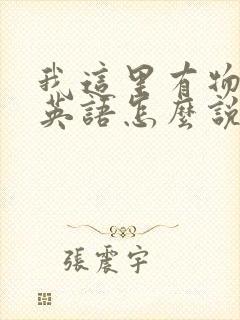 我這里有物
英語怎麼說
張震宇